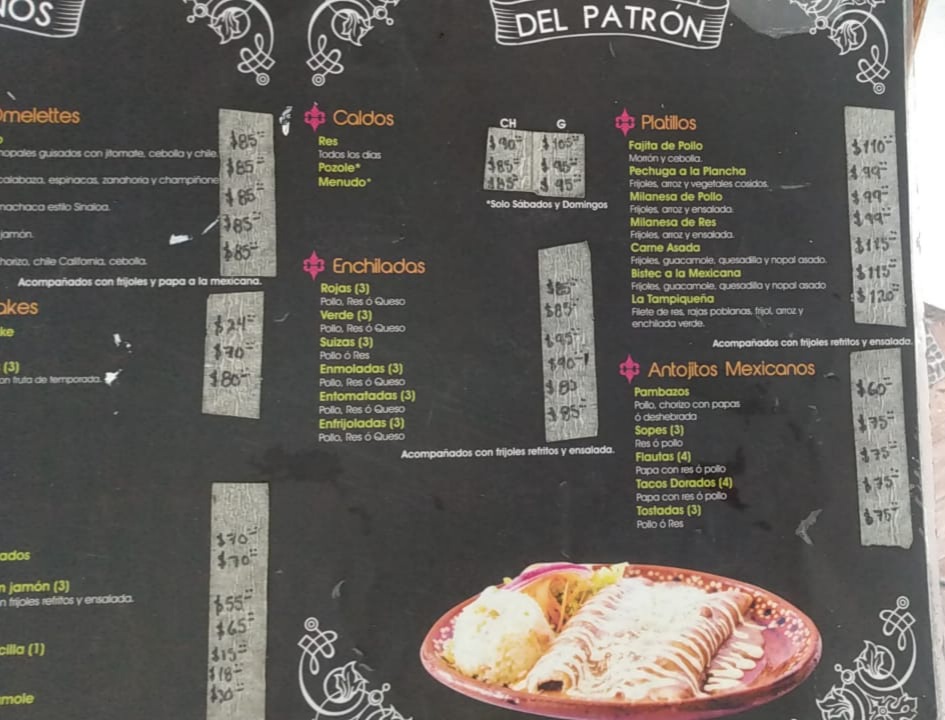 NOS
DEL PATRÓN
Omelettes
nopales guisados con jitomate, cebolla y chile. $85
calabaza, espinacas, zanahoria y champiñone $85
machaca estilo Sinaloa. $85
jamón. $85
chorizo, chile California, cebolla. $85
Acompañados con frijoles y papa a la mexicana.
akes
ke $24
(3) $70
on fruta de temporada. $80
$70
ados $70
n jamón (3) $55
n frijoles refritos y ensalada.
$65
cilla (1) $15
$18
mole
Caldos
CH G
Res $90 $105
Todos los días
Pozole* $85 $95
Menudo* $85 $95
*Solo Sábados y Domingos
Enchiladas
Rojas (3) $85
Pollo, Res ó Queso
Verde (3) $85
Pollo, Res ó Queso
Suizas (3) $95
Pollo ó Res
Enmoladas (3) $90
Pollo, Res ó Queso
Entomatadas (3) $85
Pollo, Res ó Queso
Enfrijoladas (3) $85
Pollo, Res ó Queso
Acompañados con frijoles refritos y ensalada.
Platillos
Fajita de Pollo $110
Morrón y cebolla.
Pechuga a la Plancha $99
Frijoles, arroz y vegetales cosidos.
Milanesa de Pollo $99
Frijoles, arroz y ensalada.
Milanesa de Res $99
Frijoles, arroz y ensalada.
Carne Asada $115
Frijoles, guacamole, quesadilla y nopal asado.
Bistec a la Mexicana $115
Frijoles, guacamole, quesadilla y nopal asado
La Tampiqueña $120
Filete de res, rajas poblanas, frijol, arroz y
enchilada verde.
Acompañados con frijoles refritos y ensalada.
Antojitos Mexicanos
Pambazos $60
Pollo, chorizo con papas
ó deshebrada
Sopes (3) $75
Res ó pollo
Flautas (4) $75
Papa con res ó pollo
Tacos Dorados (4) $75
Papa con res ó pollo
Tostadas (3) $75
Pollo ó Res